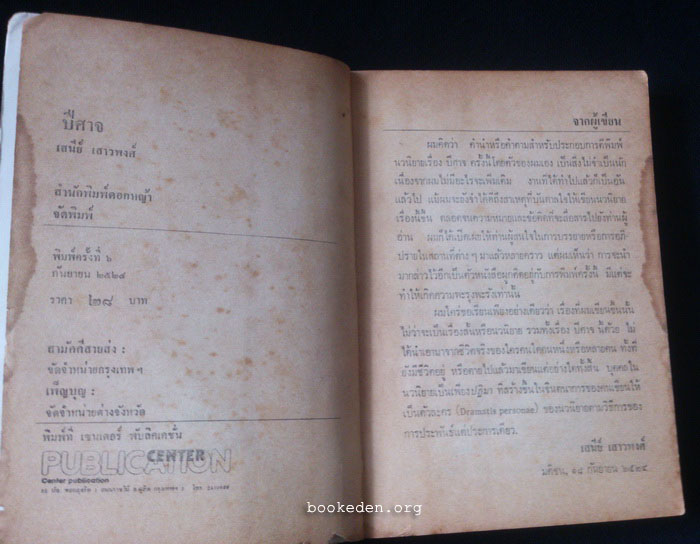 ปีศาจ
เสนีย์ เสาวพงศ์
สำนักพิมพ์ดอกหญ้า
จัดพิมพ์
พิมพ์ครั้งที่ ๖
กันยายน ๒๕๒๔
ราคา ๒๘ บาท
สามัคคีสายส่ง :
จัดจำหน่ายกรุงเทพฯ
เพ็ญบุญ :
จัดจำหน่ายต่างจังหวัด
พิมพ์ที่ เซนเตอร์ พับลิคเคชั่น
CENTER
PUBLICATION
Center publication
จากผู้เขียน
ผมคิดว่า คำนำหรือคำตามสำหรับประกอบการตีพิมพ์
นวนิยายเรื่อง ปีศาจ ครั้งนี้โดยตัวของผมเอง เป็นสิ่งไม่จำเป็นนัก
เนื่องจากผมไม่มีอะไรจะเพิ่มเติม งานที่ได้ทำไปแล้วก็เป็นอัน
แล้วไป แม้ผมจะลงจำได้ดีถึงสาเหตุที่บันดาลใจให้เขียนนวนิยาย
เรื่องนี้ขึ้น ตลอดจนความหมายและข้อคิดที่จะสื่อสารไปยังท่านผู้
อ่าน ผมก็ได้เปิดเผยให้ท่านผู้สนใจในการบรรยายหรือการอภิ-
ปรายในสถานที่ต่างๆ มาแล้วหลายคราว แต่ผมเห็นว่า การจะนำ
มากล่าวไว้อีกเป็นตัวหนังสือผูกติดอยู่กับการพิมพ์ครั้งนี้ มีแต่จะ
ทำให้เกิดความพะรุงพะรังเท่านั้น
ผมใคร่ขอเรียนเพียงอย่างเดียวว่า เรื่องที่ผมเขียนขึ้นนั้น
ไม่ว่าจะเป็นเรื่องสั้นหรือนวนิยาย รวมทั้งเรื่อง ปีศาจ นี้ด้วย ไม่
ได้นำเอามาจากชีวิตจริงของใครคนใดคนหนึ่งหรือหลายคน ทั้งที่
ยังมีชีวิตอยู่ หรือตายไปแล้วมาเขียนแต่อย่างใดทั้งสิ้น บุคคลใน
นวนิยายเป็นเพียงปฏิมา ที่สร้างขึ้นในจินตนาการของคนเขียนให้
เป็นตัวละคร (Dramatis personae) ของนวนิยายตามวิธีการของ
การประพันธ์แต่ประการเดียว.
เสนีย์ เสาวพงศ์
มติชน, ๑๘ กันยายน ๒๕๒๔
bookeden.org